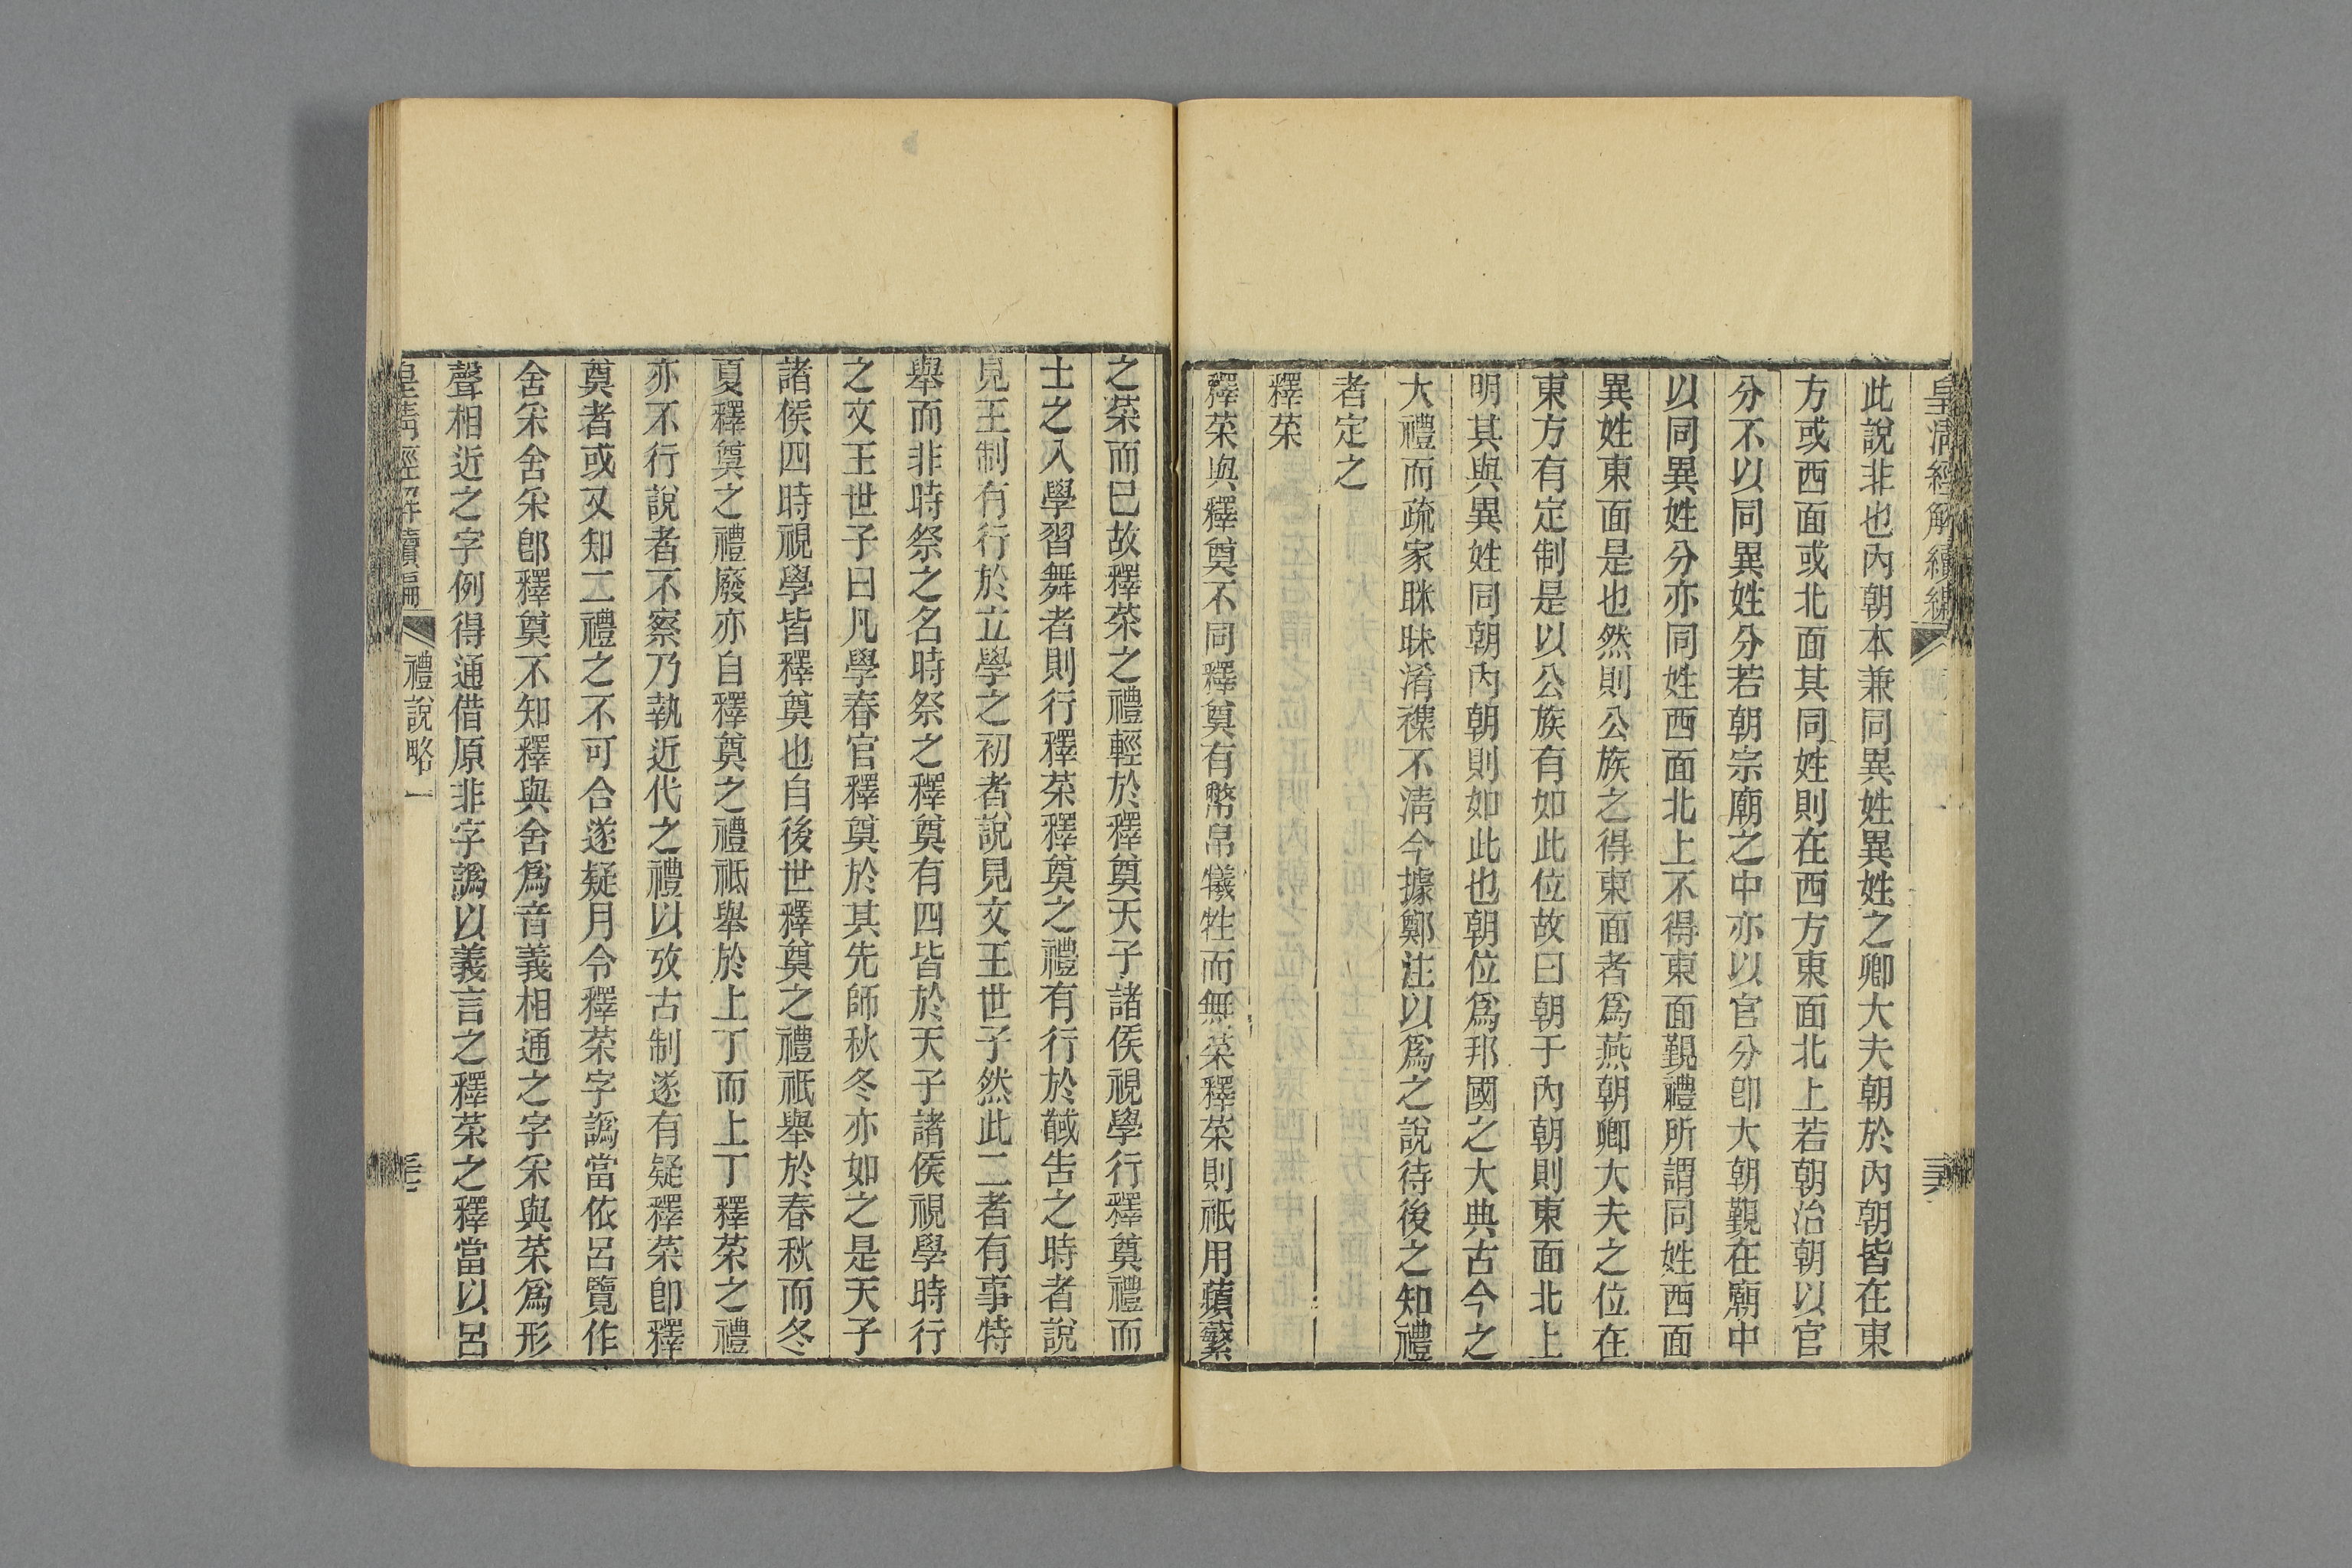 皇清經解續編
此說非也內朝本兼同異姓異姓之卿大夫朝於內朝皆在東
方或西面或北面其同姓則在西方東面北上若朝治朝以官
分不以同異姓分若朝宗廟之中亦以官分卽大朝覲在廟中
以同異姓分亦同姓西面北上不得東面覲禮所謂同姓西面
異姓東面是也然則公族之得東面者爲燕朝卿大夫之位在
東方有定制是以公族有如此位故曰朝于內朝則東面北上
明其與異姓同朝內朝則如此也朝位爲邦國之大典古今之
大禮而疏家眯昧淆襍不淸今據鄭注以爲之說待後之知禮
者定之
釋菜
釋菜與釋奠不同釋奠有幣帛犧牲而無菜釋菜則祇用蘋蘩
之菜而已故釋菜之禮輕於釋奠天子諸侯視學行釋奠禮而
士之入學習舞者則行釋菜釋奠之禮有行於馘告之時者說
見王制有行於立學之初者說見文王世子然此二者有事特
舉而非時祭之名時祭之釋奠有四皆於天子諸侯視學時行
之文王世子曰凡學春官釋奠於其先師秋冬亦如之是天子
諸侯四時視學皆釋奠也自後世釋奠之禮祇舉於春秋而冬
夏釋奠之禮廢亦自釋奠之禮祇舉於上丁而上丁釋菜之禮
亦不行說者不察乃執近代之禮以攷古制遂有疑釋菜卽釋
奠者或又知二禮之不可合遂疑月令釋菜字譌當依呂覽作
舍采舍采卽釋奠不知釋與舍爲音義相通之字采與菜爲形
聲相近之字例得通借原非字譌以義言之釋菜之釋當以呂
皇清經解續編 禮說略一